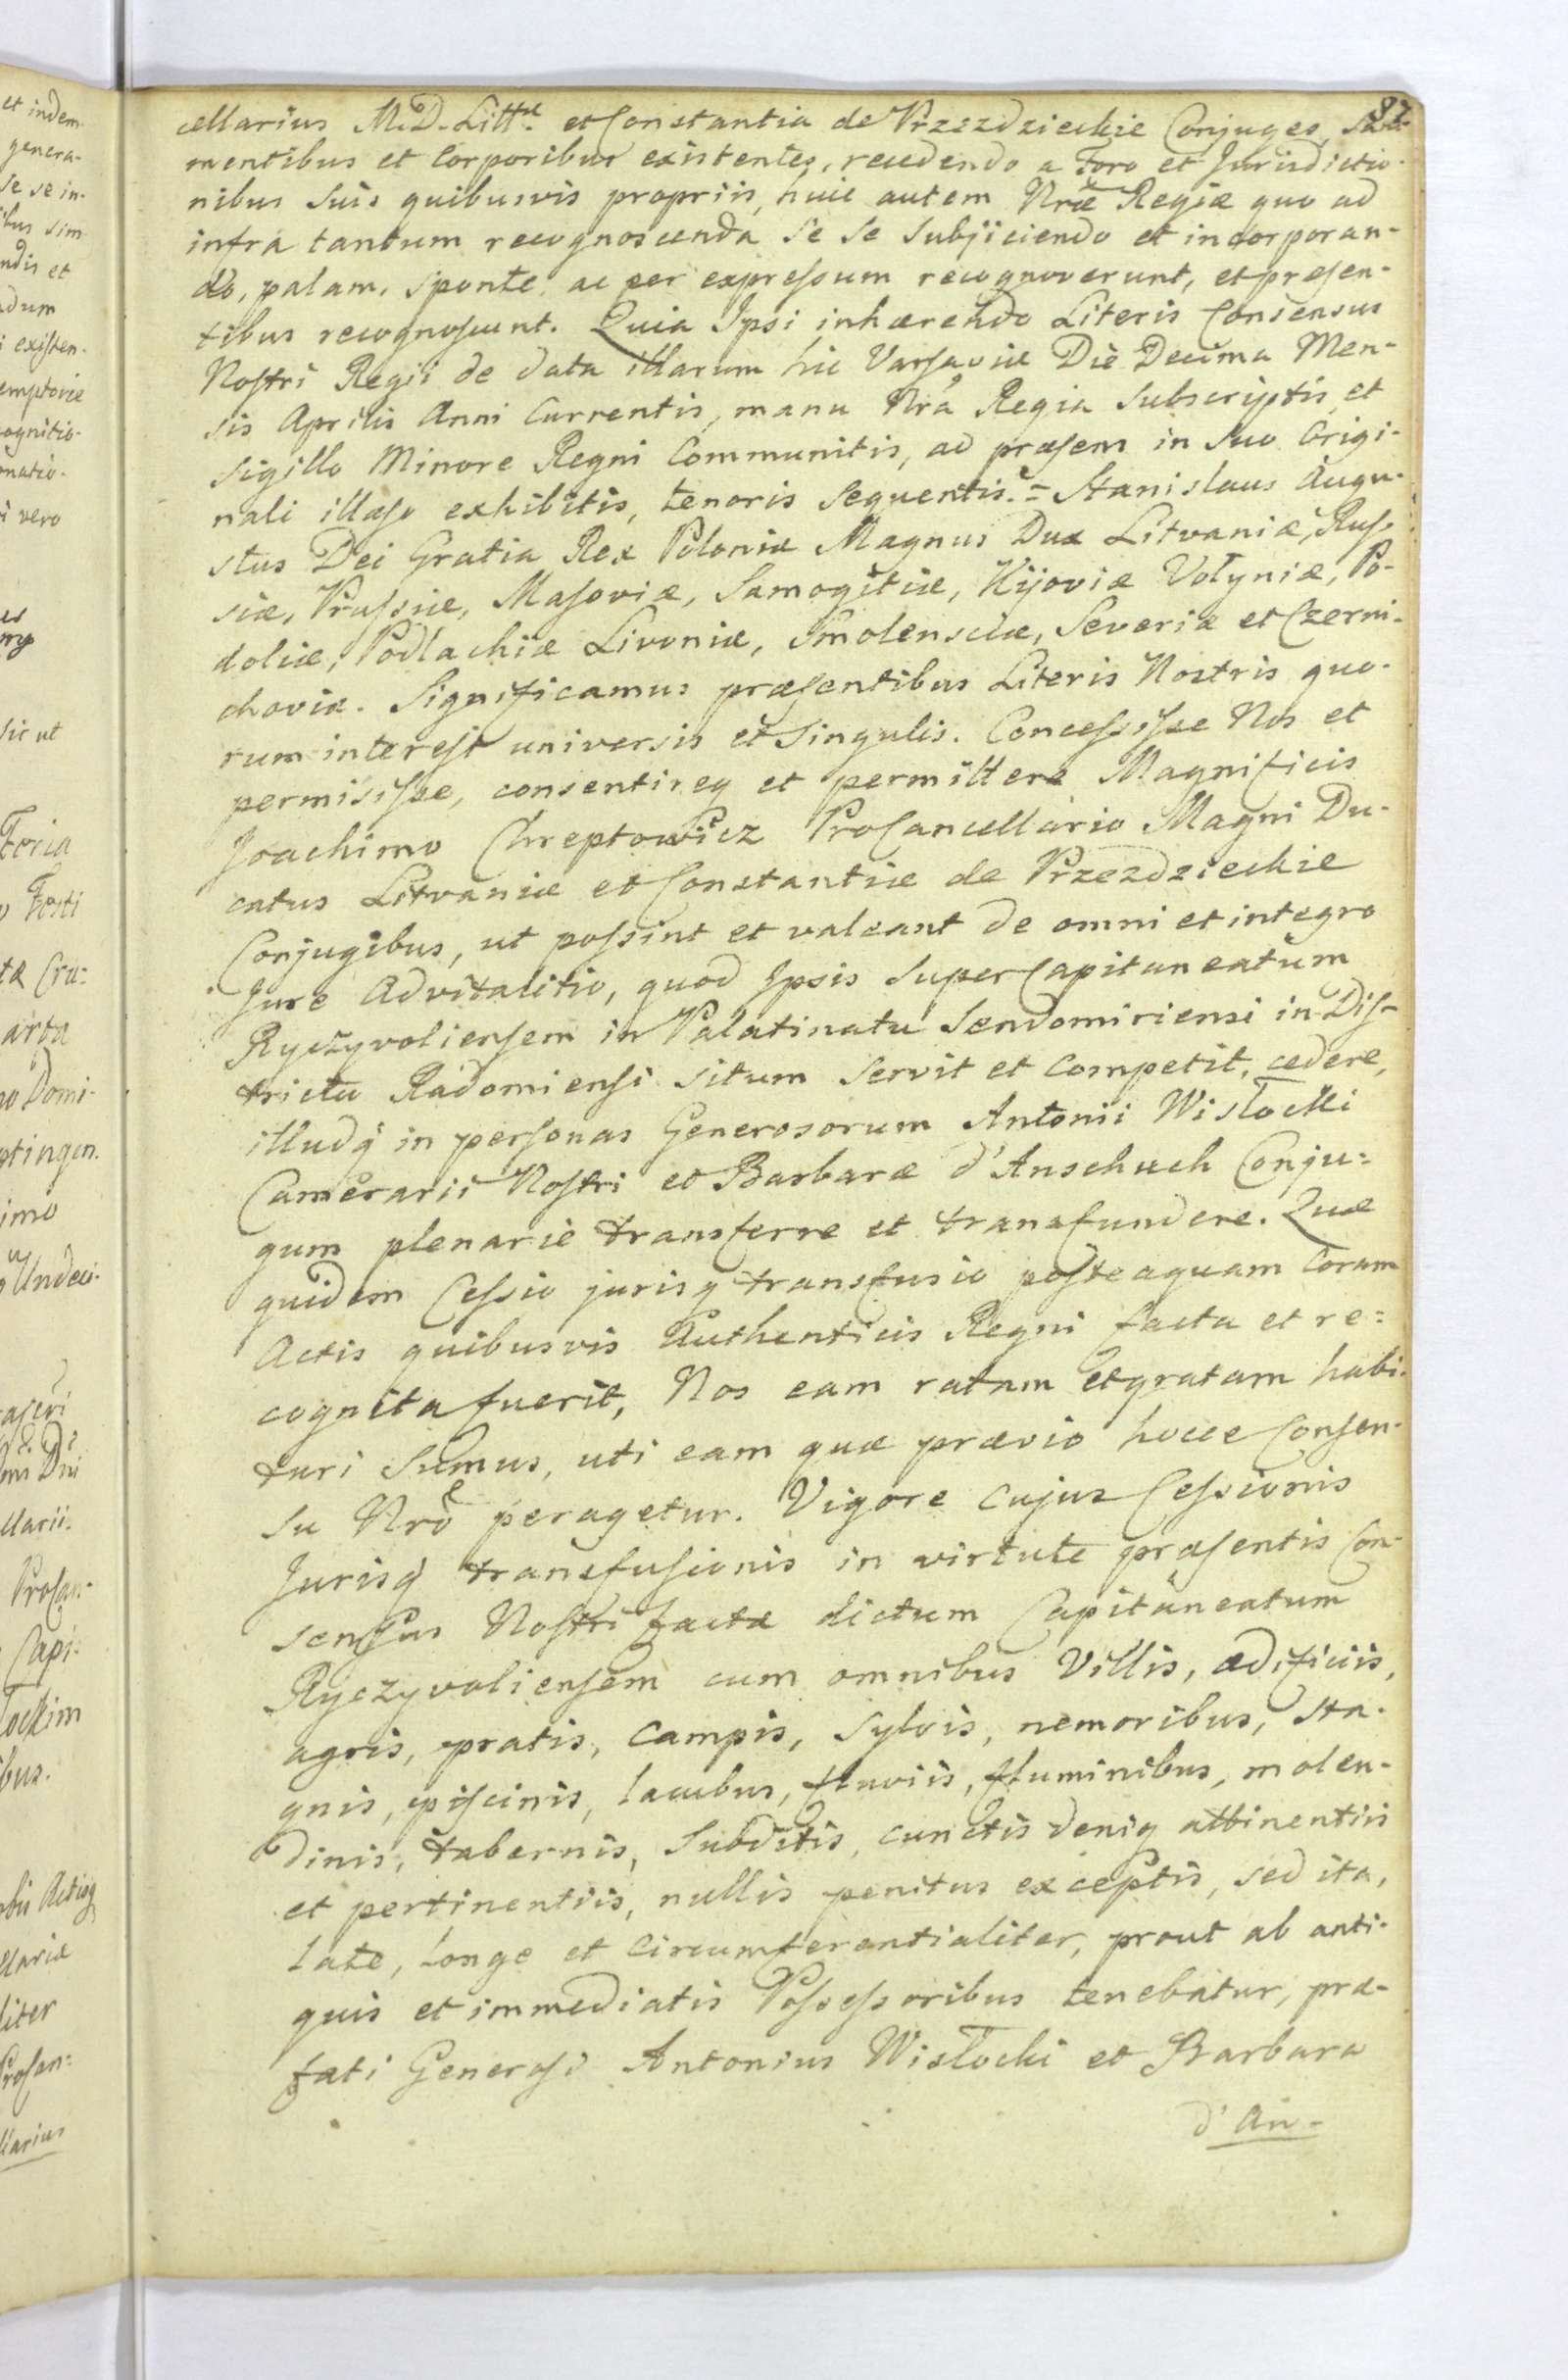 87
cellarius M.D. Litt. et Constantia de Przezdzieckie Conjuges, Sani
mentibus et Corporibus existentes, recedendo a Foro et Jurisdictio-
nibus Suis quibusvis propriis, huic autem Nræ Regiæ quo ad
infra tantum recognoscenda Se Se Subjiciendo et incorporan-
do, palam, Sponte ac per expressum recognoverunt, et presen-
tibus recognoscunt. Quia Ipsi inhærendo Literis Consensus
Nostri Regii de data illarum hic Varsaviæ Die Decima Men-
sis Aprilis Anni Currentis, manu Nrá Regia Subscriptis et
Sigillo Minore Regni Communitis, ad præsens in Suo Origi-
nali illæso exhibitis, tenoris Sequentis. = Stanislaus Augu-
stus Dei Gratia Rex Poloniæ Magnus Dux Litvaniæ, Rus-
siæ, Prussiæ, Masoviæ, Samogitiæ, Kijoviæ Volyniæ, Po-
doliæ, Podlachiæ Livoniæ, Smolensciæ, Severiæ et Czerni-
choviæ. Significamus præsentibus Literis Nostris quo-
rum interest universis et Singulis. Concessisse Nos et
permisisse, consentireq et permittere Magnificis
Joachimo Chreptowicz ProCancellario Magni Du-
catus Litvaniæ et Constantiæ de Przezdzieckie
Conjugibus, ut possint et valeant de omni et integro
Jure Advitalitio, quod Ipsis Super Capitaneatum
Ryczyvoliensem in Palatinatu Sendomiriensi in Dis-
trictu Radomiensi situm Servit et Competit, cedere,
illudq in personas Generosorum Antonii Wisłocki
Camerarii Nostri et Barbaræ d'Anschuch Conju=
gum plenarie transferre et transfundere. Quæ
quidem Cessio jurisq transfusio posteaquam Coram
Actis quibusvis Authenticis Regni facta et re=
cognita fuerit, Nos eam ratam et gratam habi-
turi Sumus, uti eam quæ prævio hocce Consen-
su Nro peragetur. Vigore cujus Cessionis
Jurisq transfusionis in virtute præsentis Con-
sensus Nostri factæ dictum Capitaneatum
Ryczyvoliensem cum omnibus Villis, ædificiis,
agris, pratis, Campis, Sylvis, nemoribus, Sta-
gnis, piscinis, lacubus, fluviis, fluminibus, molen-
dinis, tabernis, Subditis, cunctis deniq attinentiis
et pertinentiis, nullis penitus exceptis, sed ita,
late, longe et Circumferentialiter, prout ab anti-
quis et immediatis Possessoribus tenebatur, præ-
fati Generosi Antonius Wisłocki et Barbara
d'An-